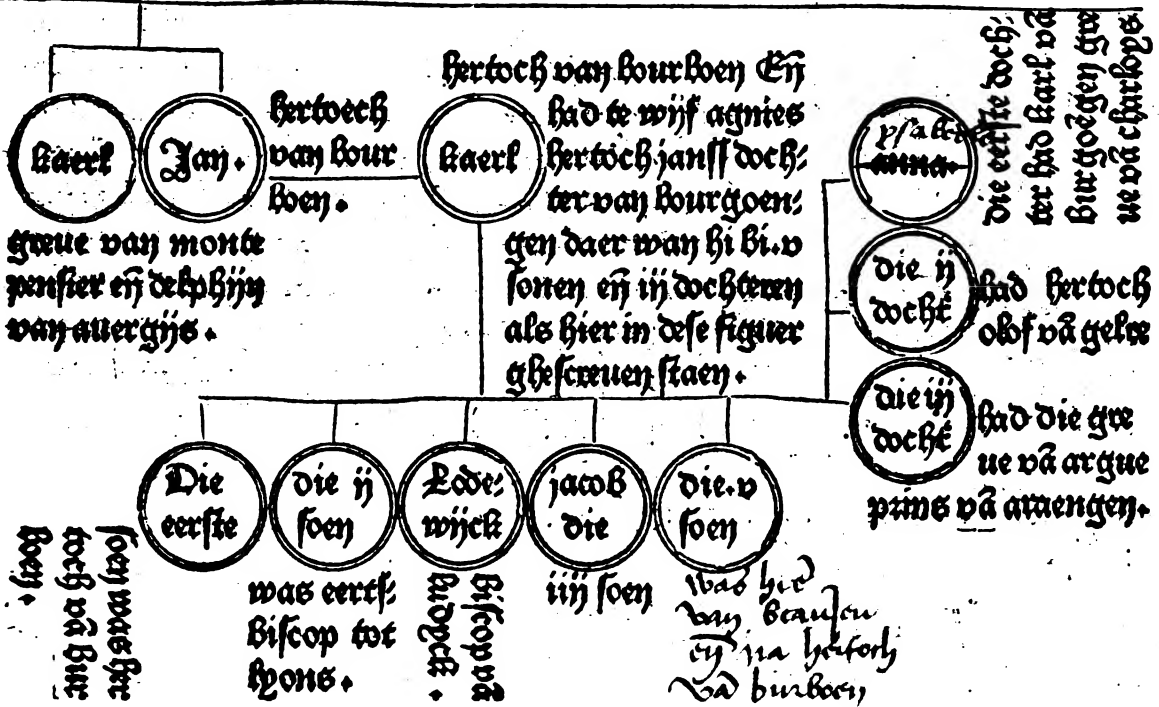 kaerl
Jan.
hertoech
van bour
boen.
greue van monte
pensier en̄ delphijn
van auergijs.
hertoch van bourboen En̄
kaerl
had te wijf agnies
hertoch janss doch:
ter van bourgoen:
gen daer wan hi bi.v
sonen en̄ iij dochteren
als hier in dese figuer
ghescreuen staen.
anna.
die eerste doch:
ter had karl vā
burgoēgen gre
ue vā charloys
die ij
docht̄
had hertoch
olof vā gelre
die iij
docht̄
had die gre
ue vā argue
prins vā
Die
eerste
soen was her
toch vā bur
boen.
die ij
soen
was eerts:
biscop tot
lyons.
Lode:
wijck
biscop vā
ludyck.
jacob
die
iiij soen
die.v
soen
was hie
van beauseu
en̄ na hertoch
vā burboen